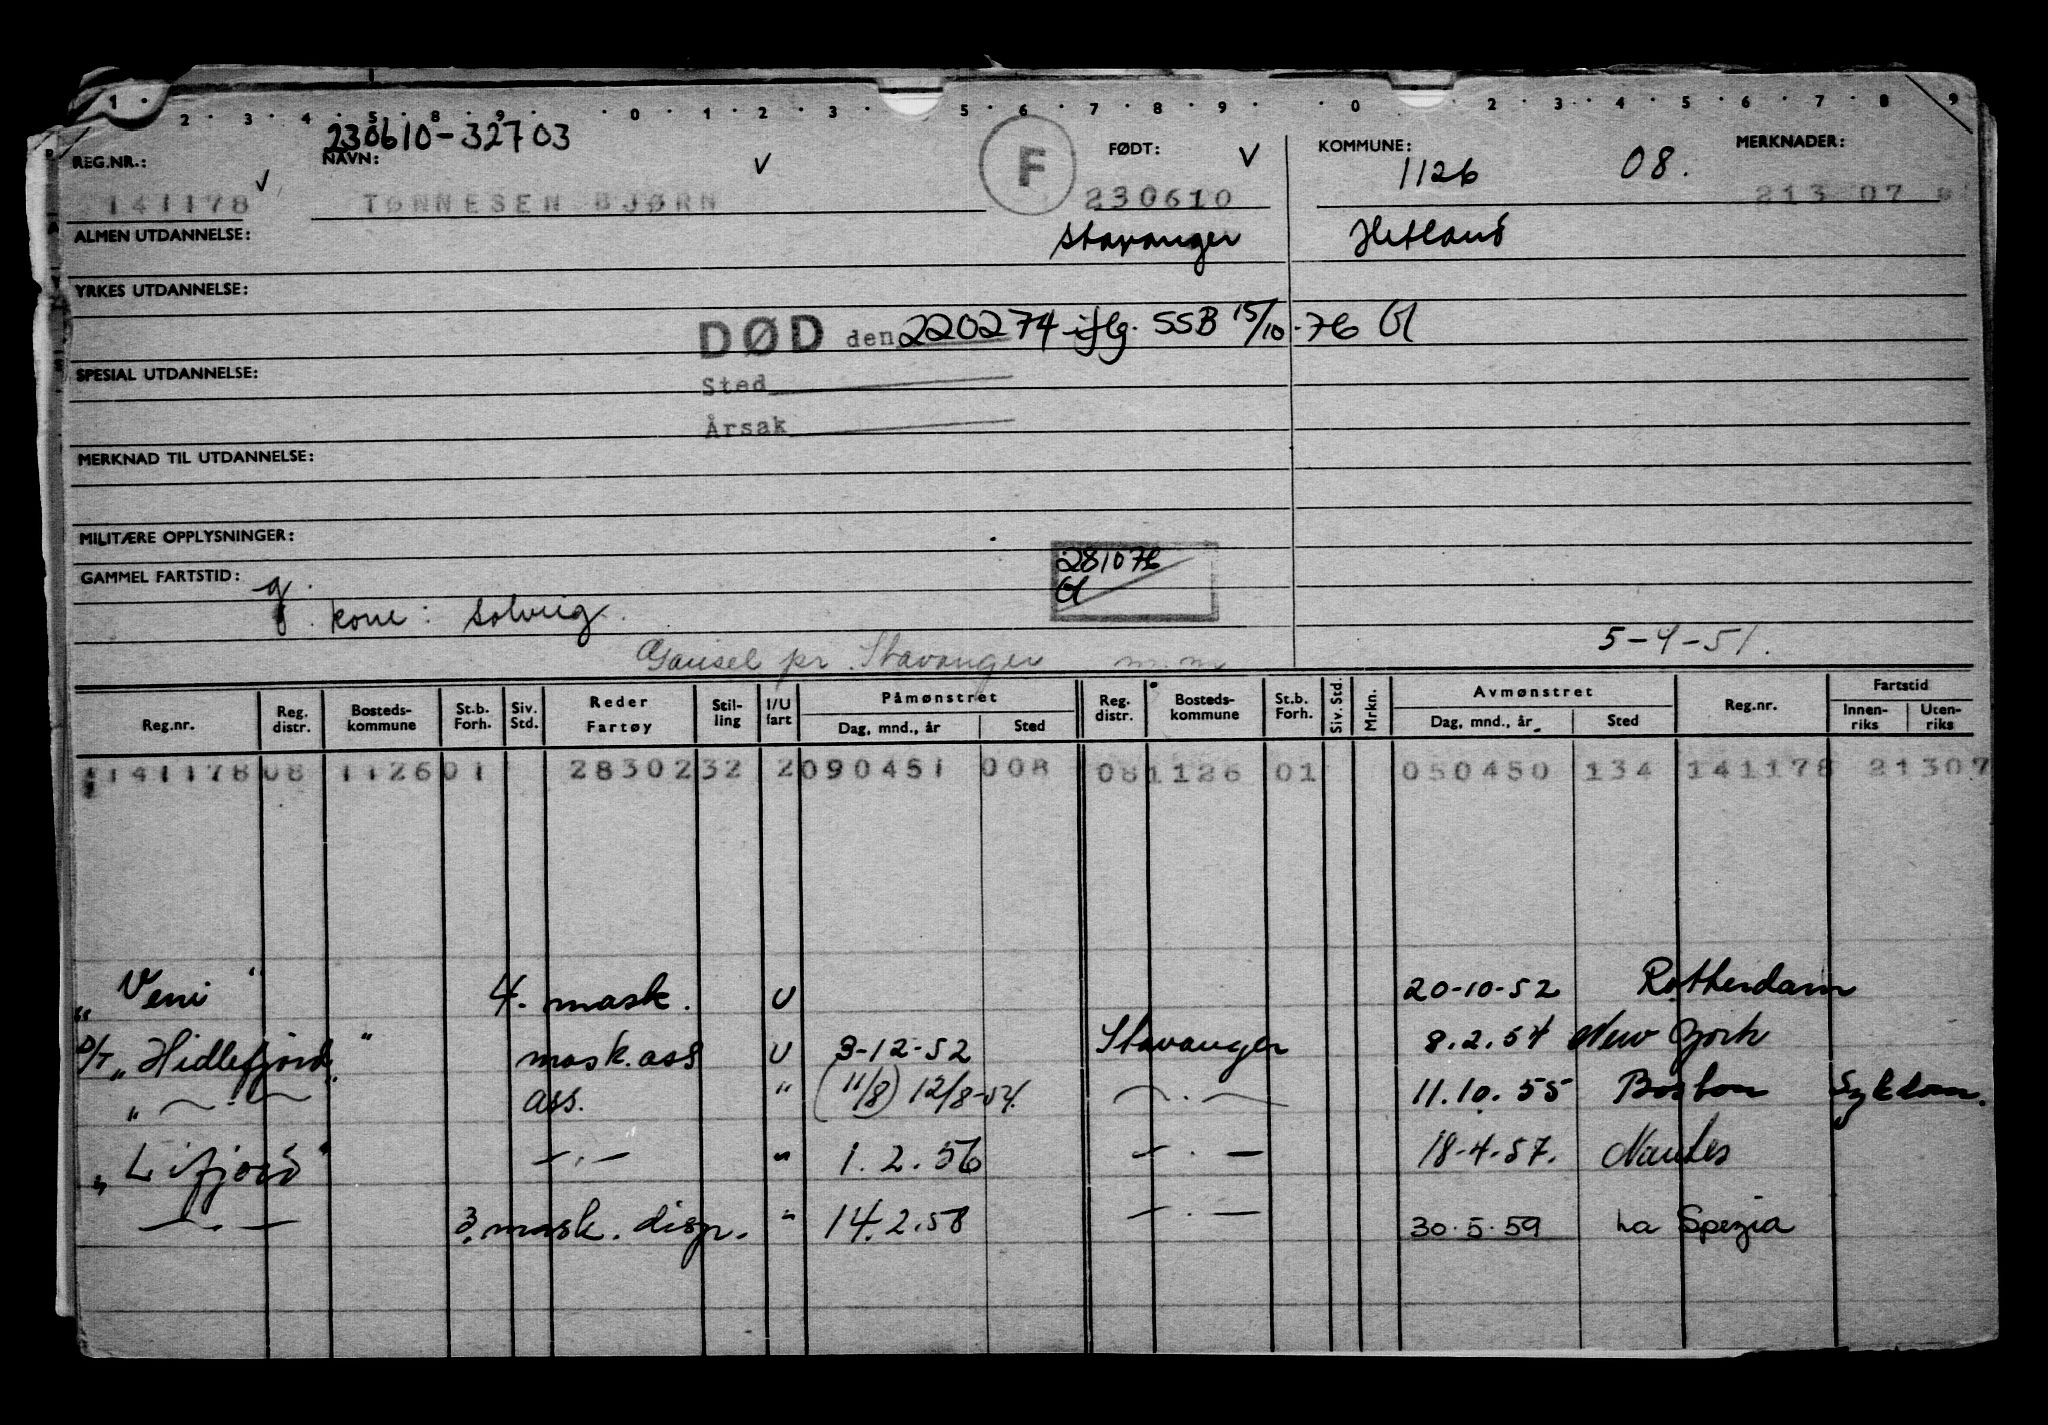 1 2 3 4 5 8 9 0 1 2 3 5 6 7 8 9 0 2 3 4 5 6 7 8 9
230610-32703
REG.NR.: NAVN: F FØDT: KOMMUNE: 1126 08. MERKNADER:
141178 TØNNESEN BJØRN 230610 213 07
ALMEN UTDANNELSE: Stavanger Hetland
YRKES UTDANNELSE:
DØD den 220274 iflg. SSB 15/10-76 Gl
SPESIAL UTDANNELSE: Sted
Årsak
MERKNAD TIL UTDANNELSE:
MILITÆRE OPPLYSNINGER:
281076
GAMMEL FARTSTID: g. Gl
kone: Solveig.
5-4-51.
Gausel pr. Stavanger m.m
Reg.nr. Reg. distr. Bosteds-kommune St.b. Forh. Siv. Std. Reder Fartøy Stil-ling I/U fart Påmønstret Dag, mnd., år Sted Reg. distr. Bosteds-kommune St.b. Forh. Siv. Std. Mrkn. Avmønstret Dag, mnd., år Sted Reg.nr. Fartstid Innen-riks Uten-riks
141178 08 1126 01 28302 32 2 090451 008 08 1126 01 050450 134 141178 21307
"Veni" 4. mask. U 20-10-52 Rotterdam
D/T "Hidlefjord" mask.ass U 3-12-52 Stavanger 8.2.54 New York
" — · — ass. " (11/8) 12/8-54. — · — 11.10.55 Boston Sykdom.
"Lifjord" — · — " 1.2.56 — · — 18-4-57. Nantes
— · — 3. mask. disp. " 14.2.58 — · — 30.5.59 La Spezia